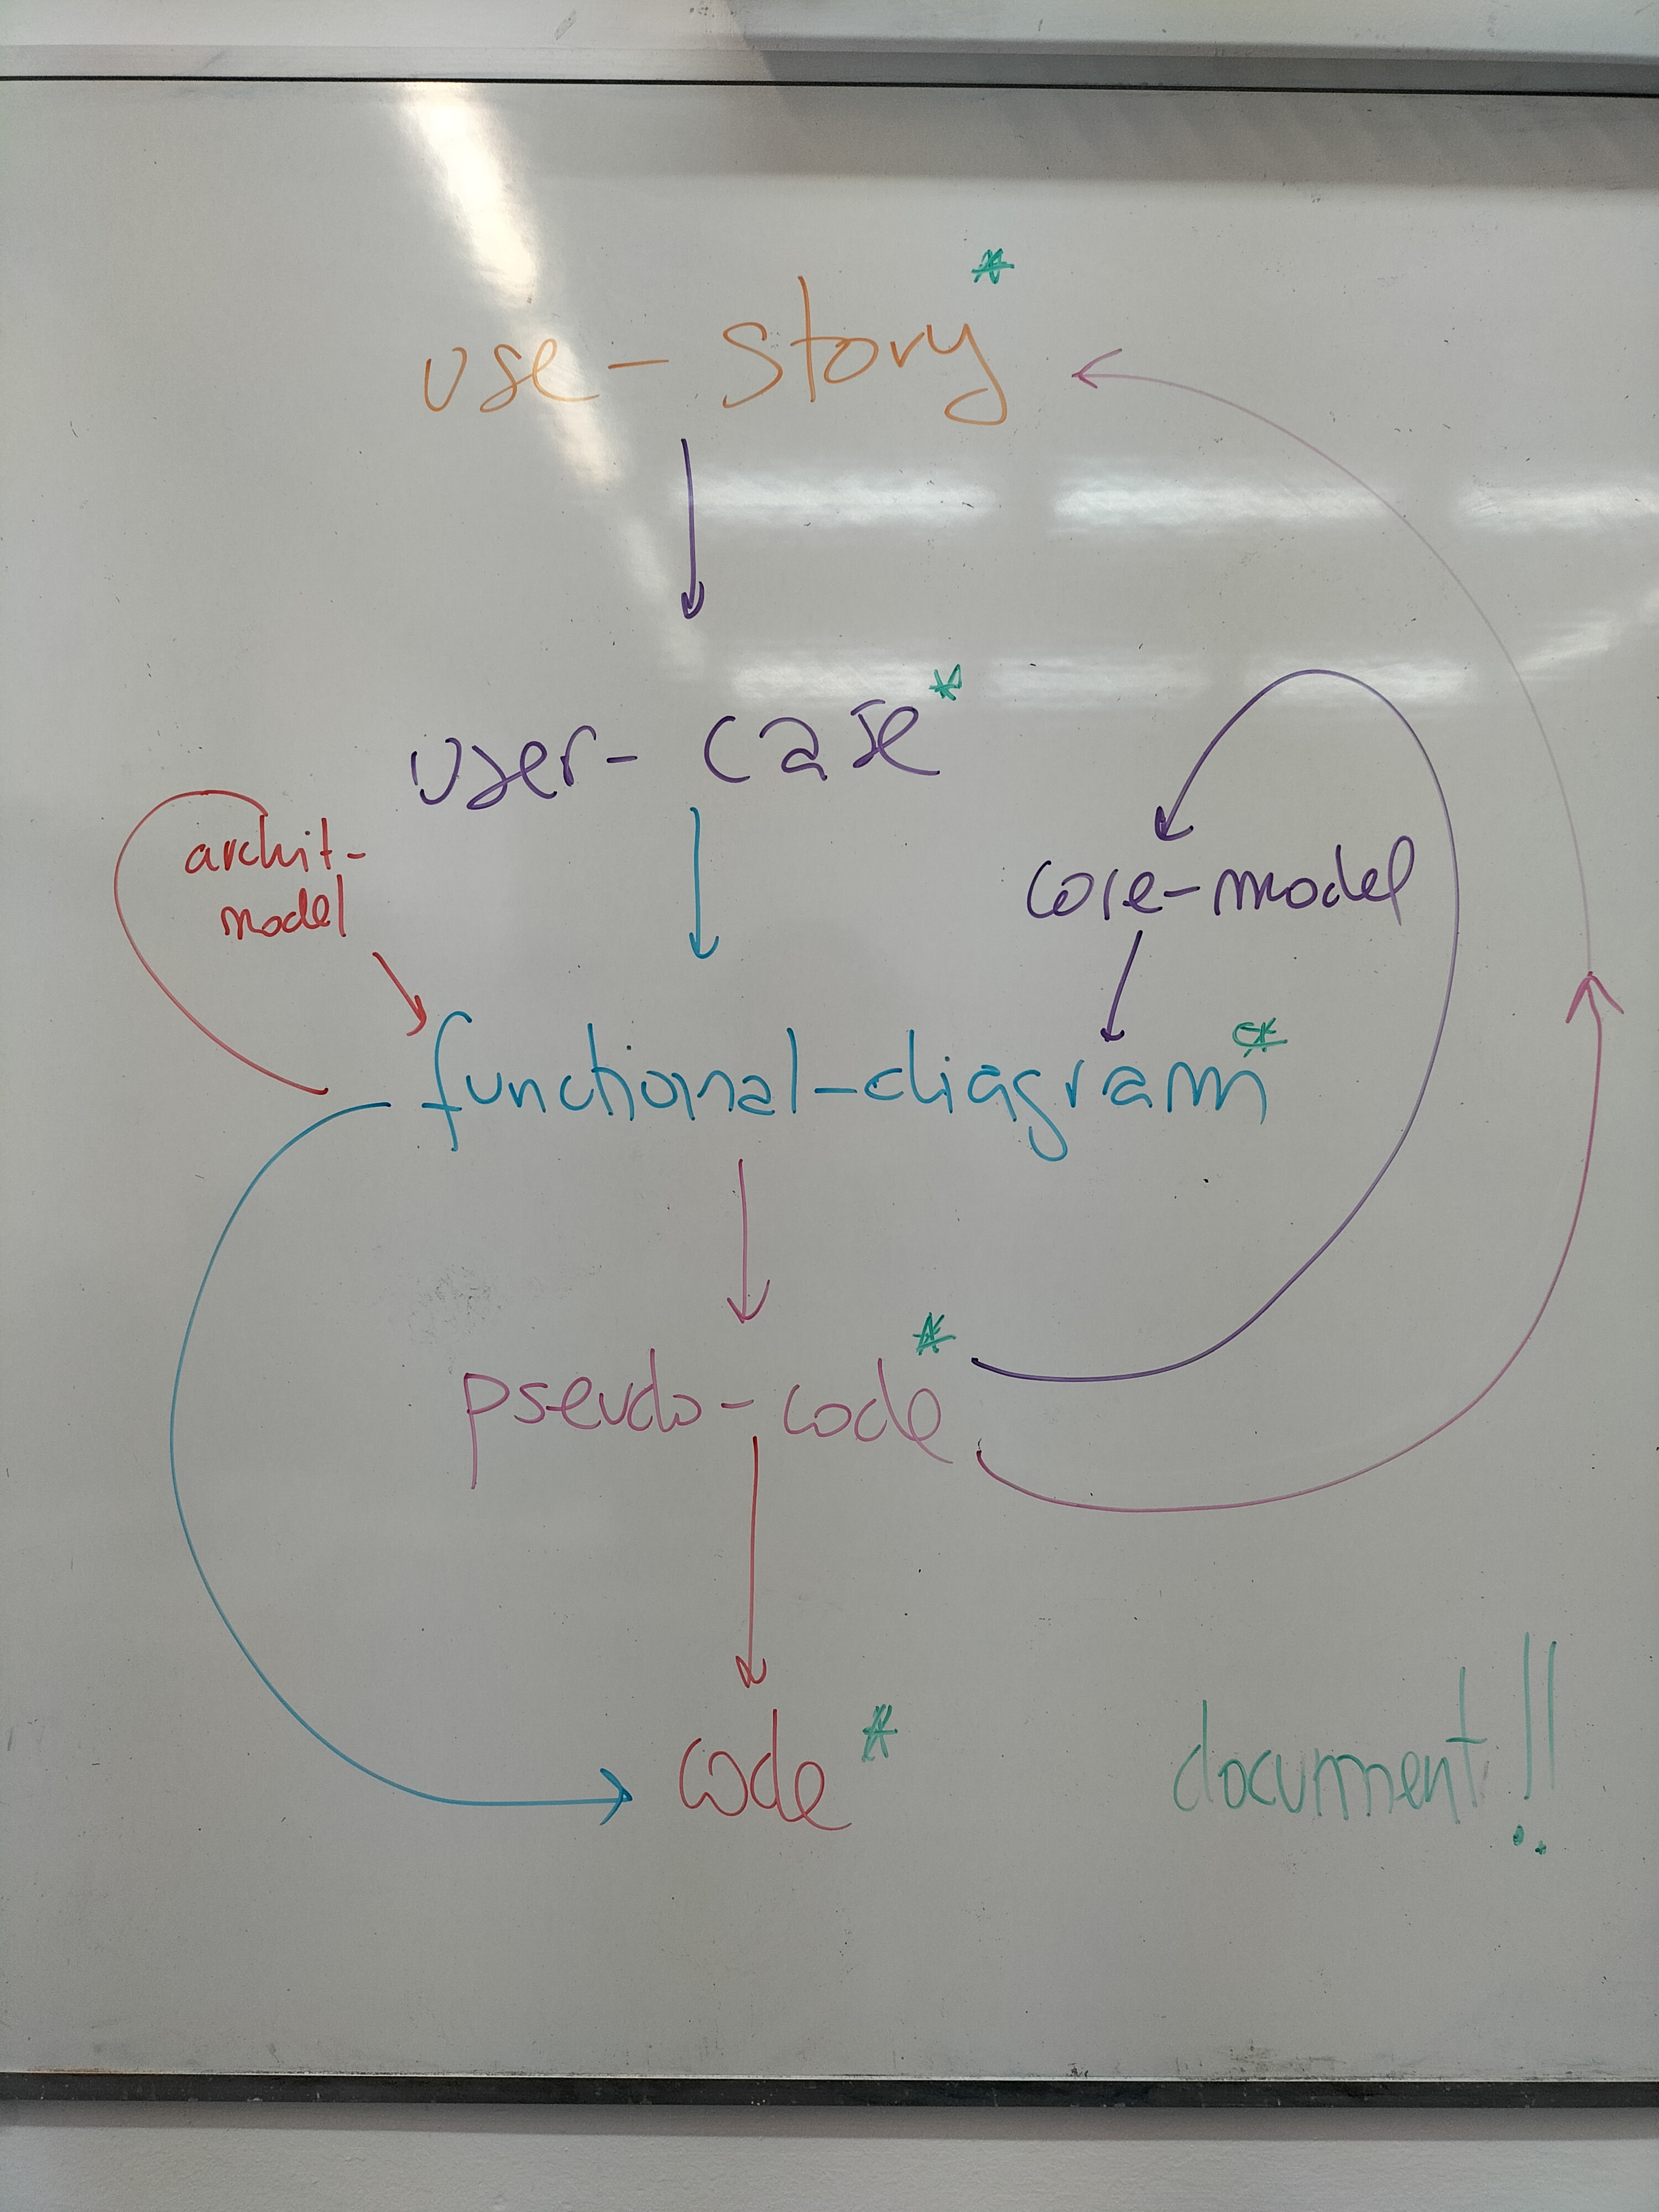 use-story*
user-case*
archit-
model
core-model
functional-diagram*
pseudo-code*
code*
document!!